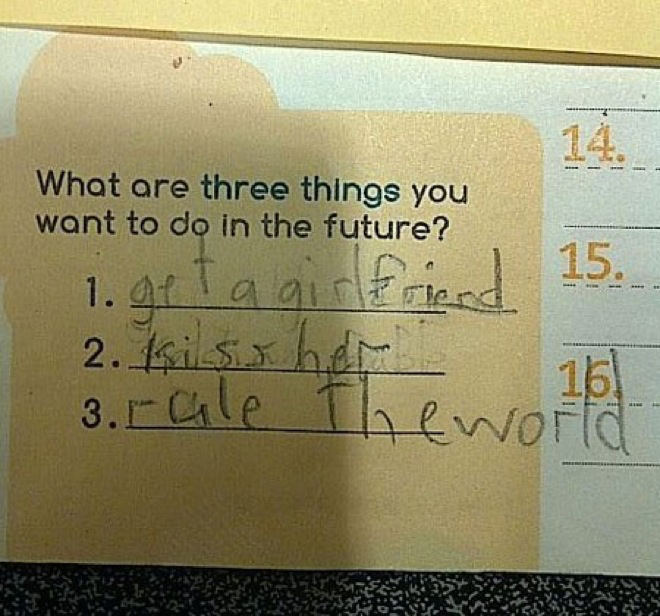 What are three things you
want to do in the future?
1. get a girlfriend
2. kiss her
3. rule The world
14.
15.
16.